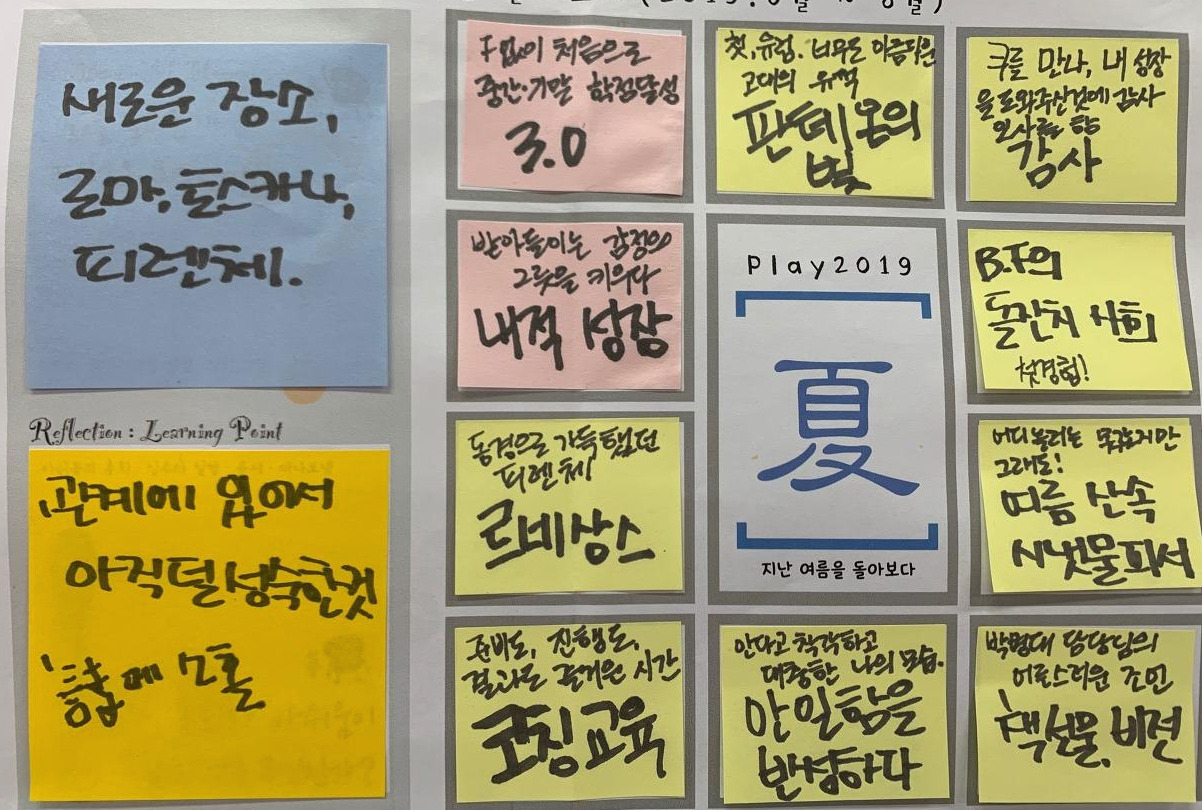 새로운 장소,
로마, 토스카나,
피렌체.
Reflection : Learning Point
관계에 있어서
아직 덜 성숙한것
F없이 처음으로
중간·기말 학점달성
3.0
첫, 유럽. 너무도 아름다운
고대의 유적
판테온의
빛
쿠를 만나, 내 성장
을 도와주신것에 감사
인사를 함
감사
받아들이는 감정의
그릇을 키우다
내적 성장
Play2019
夏
지난 여름을 돌아보다
B.F의
돌잔치 사회
첫경험!
동경으로 가득 했던
피렌체
르네상스
어디 놀러는 못갔지만
그래도!
여름 산속
시냇물피서
준비도, 진행도,
결과도 즐거운 시간
코칭교육
안다고 착각하고
대충한 나의 모습.
안일함을
반성하다
박명대 담당님의
어른스러운 조언
책선물, 비전